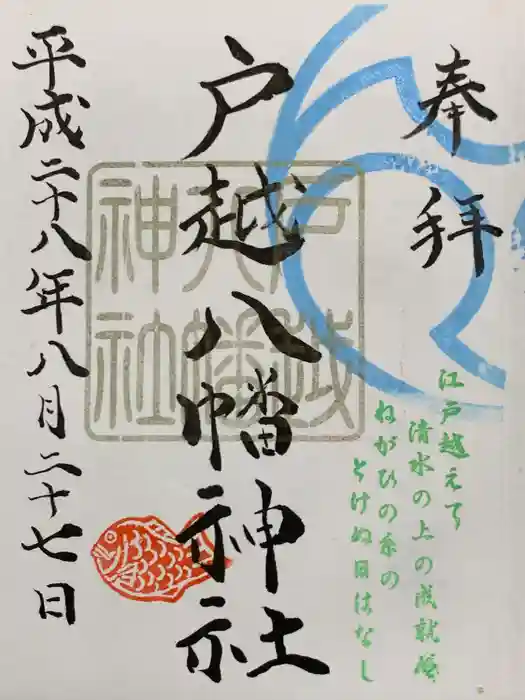 奉拝
江戸越えて
清水の上の成就庵
ねがひの糸の
とけぬ日はなし
戸越八幡神社
戸越
八幡
神社
平成二十八年八月二十七日